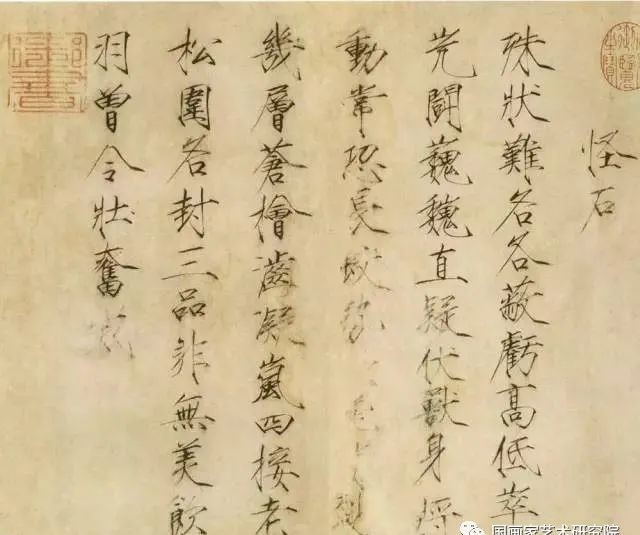 怪石
殊狀難名各蔽虧高低萃
兀鬭巍巍直疑伏獸身將
動常恐長蛟勢
幾層蒼檜凝嵐四接老
松圍各封三品非無美飲
羽曾令壯奮
国画家艺术研究院